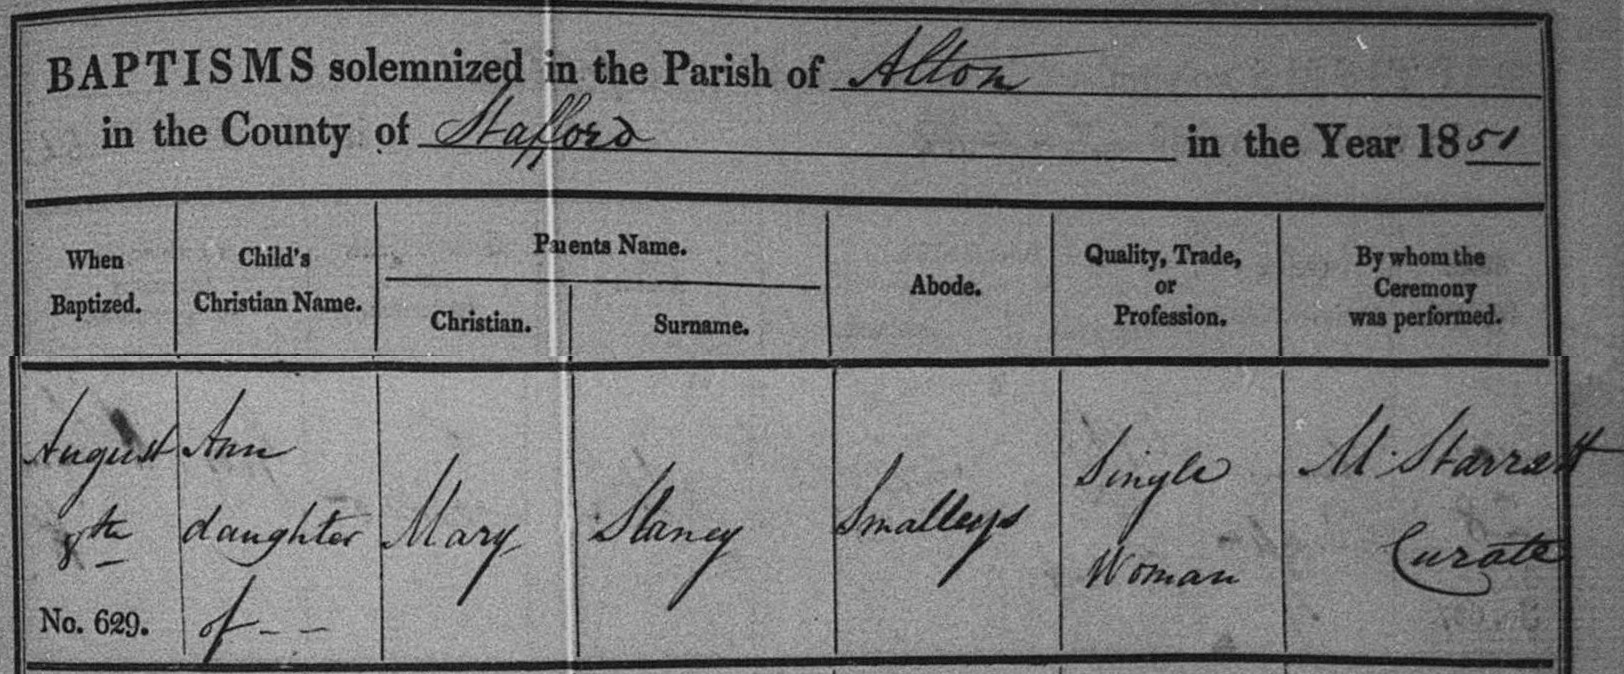 BAPTISMS solemnized in the Parish of Alton
in the County of Stafford in the Year 1851
When
Baptized.
Child's
Christian Name.
Parents Name.
Christian.
Surname.
Abode.
Quality, Trade,
or
Profession.
By whom the
Ceremony
was performed.
August
8th
No. 629.
Ann
daughter
of - -
Mary
Staney
Single
Woman
M. Starratt
Curate